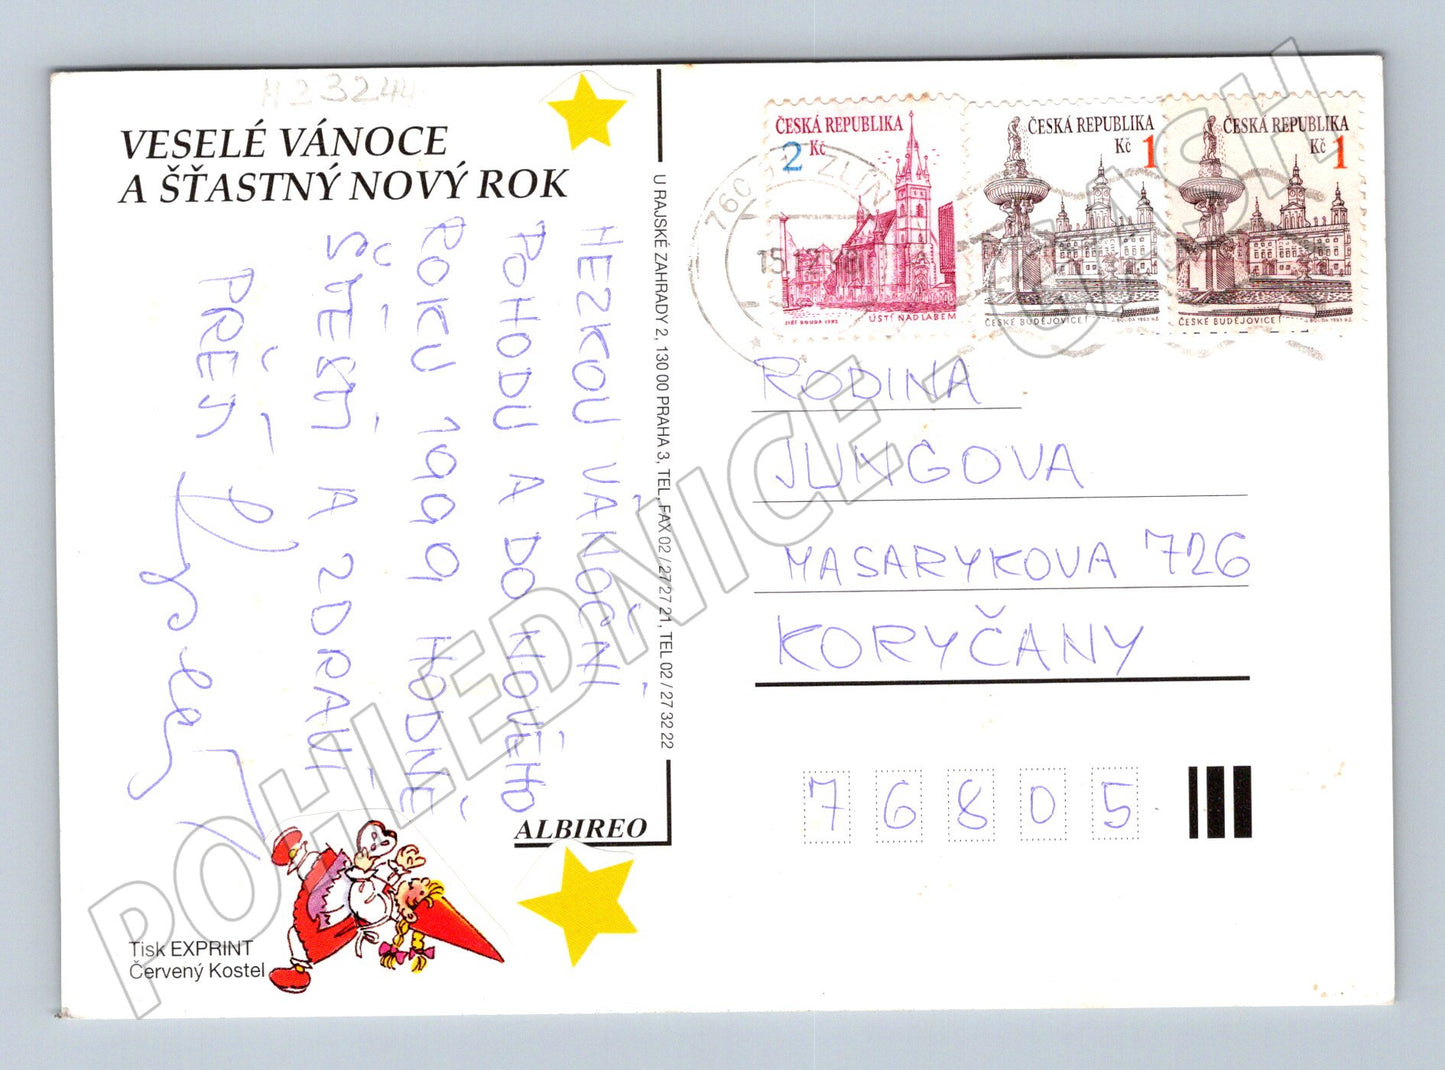 VESELÉ VÁNOCE
A ŠŤASTNÝ NOVÝ ROK
HEZKOU VÁNOČNÍ
POHODU A DO NOVÉHO
ROKU 1999 HODNĚ
ŠTĚSTÍ A ZDRAVÍ
PŘEJÍ
U RAJSKÉ ZAHRADY 2, 130 00 PRAHA 3, TEL, FAX 02 / 27 27 21, TEL 02 / 27 32 22
ALBIREO
Tisk EXPRINT
Červený Kostel
ČESKÁ REPUBLIKA
2 Kč
JIŘÍ BOUDA 1993
ÚSTÍ NAD LABEM
ČESKÁ REPUBLIKA
Kč 1
ČESKÉ BUDĚJOVICE
ČESKÁ REPUBLIKA
Kč 1
ČESKÉ BUDĚJOVICE
ZLÍN
RODINA
JUNGOVA
MASARYKOVA 726
KORYČANY
76805
POHLEDNICE - CASH